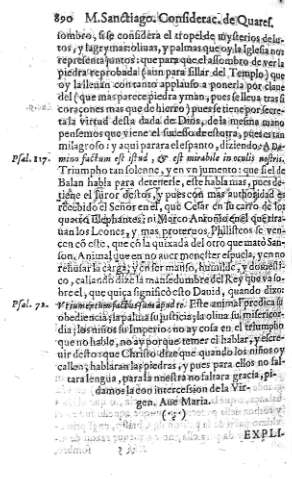 890 M. Sanctiago. Considerac. de Quares.
sombro, si se considera el tropel de mysterios de lu-
tos, y lagrymas oliuas, y palmas que oy la Iglesia nos
representa juntos: que para que el assombro de ver la
piedra reprobada (aun para sillar del Templo) que
oy la lleuan con tanto aplauso a ponerla por claue
del (que mas parece piedra yman, pues se lleua tras si
coraçones mas que de hierro) pues se tiene por secre-
ta la virtud desta dada de Dios, de la mesma mano
pensemos que viene el sucesso de estotra, pues es tan
milagroso: y aqui parara el espanto, diziendo: A Do-
Psal. 117. mino factum est istud, & est mirabile in oculis nostris.
Triumpho tan solenne, y en vn jumento: que si el de
Balan habla para detenerse, este habla mas, pues de-
tiene el furor destos, y pues con mas authoridad es
recebido el Señor en el, que Cesar en su carro de los
quatro Elephantes: ni Marco Antonio en el que tira-
uan los Leones, y mas proteruos Philisteos se ven-
cen cō este, que cō la quixada del otro que mató San-
son. Animal que en no auer menester espuela, y en no
rehusar la carga, y en ser manso, humilde, y domesti-
co, califica la mansedumbre del Rey que va so-
bre el, que quiça significó esto Dauid, quando dixo
Psal. 72. Vt jumentum factus sum apud te. Este animal predica su
obediencia; la palma su justicia; la oliua su misericor-
dia; los niños su Imperio: no ay cosa en el triumpho
que no hable, no ay porque temer el hablar, y escre-
uir destos: que Christo dize que quando los niños oy
callen, hablaran las piedras, y pues para ellos no fal-
tara lengua, para la nuestra no faltara gracia, pi-
damosla con intercession de la Vir-
gen. Aue Maria.
(·§·)
EXPLI-